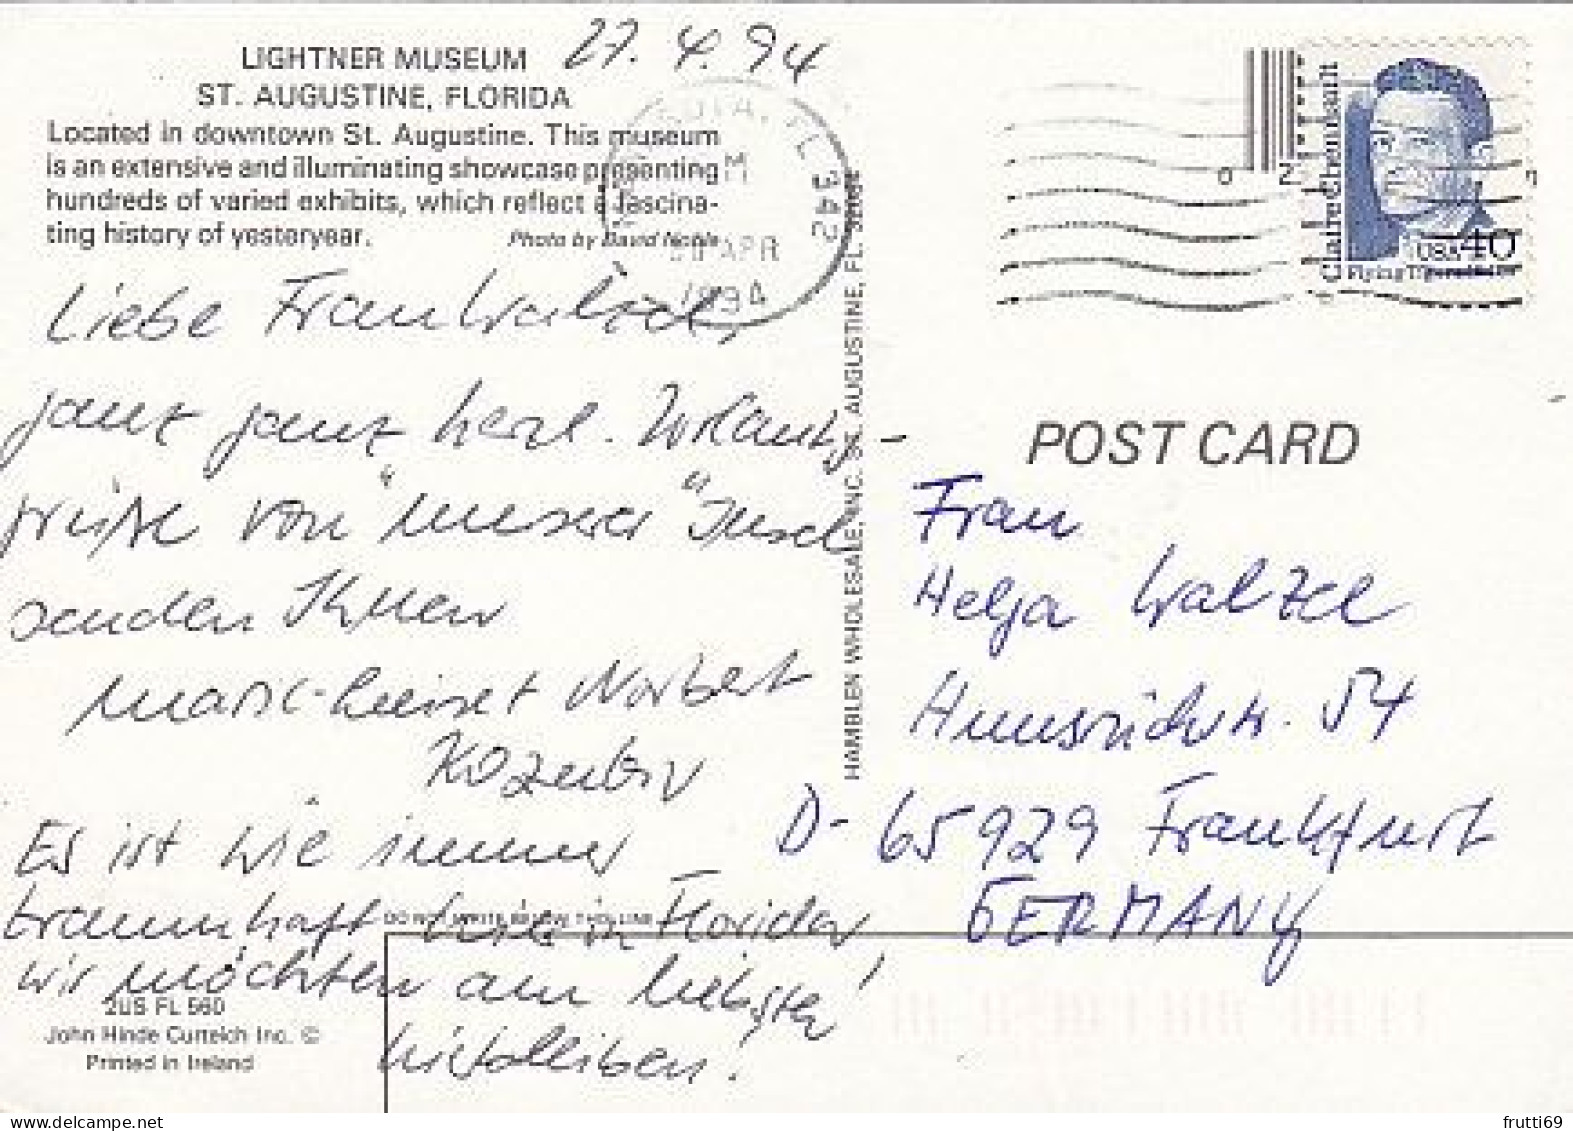 LIGHTNER MUSEUM
ST. AUGUSTINE, FLORIDA
27. 4. 94
Located in downtown St. Augustine. This museum
is an extensive and illuminating showcase presenting
hundreds of varied exhibits, which reflect a fascina-
ting history of yesteryear.
Photo by David Nicole
Liebe Frau
ganz ganz herzl. Urlaubs-
grüße von "unserer" Insel
senden Ihnen
Norbert
Es ist wie immer
traumhaft hier in Florida,
wir möchten am liebsten
hierbleiben!
DO NOT WRITE BELOW THIS LINE
2US FL 560
John Hinde Curteich Inc. ©
Printed in Ireland
HAMBLEN WHOLESALE, INC. ST. AUGUSTINE, FL.
FL 342
APR
1994
0 2
Claire Chennault
USA 40
Flying Tigers
POST CARD
Frau
Helga Walzel
Hunsrückstr. 54
D-65929 Frankfurt
GERMANY
frutti69